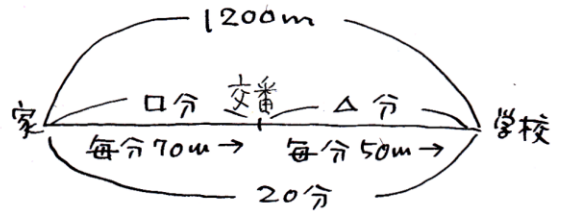 1200m
□分 交番 △分
家 学校
毎分70m→ 毎分50m→
20分